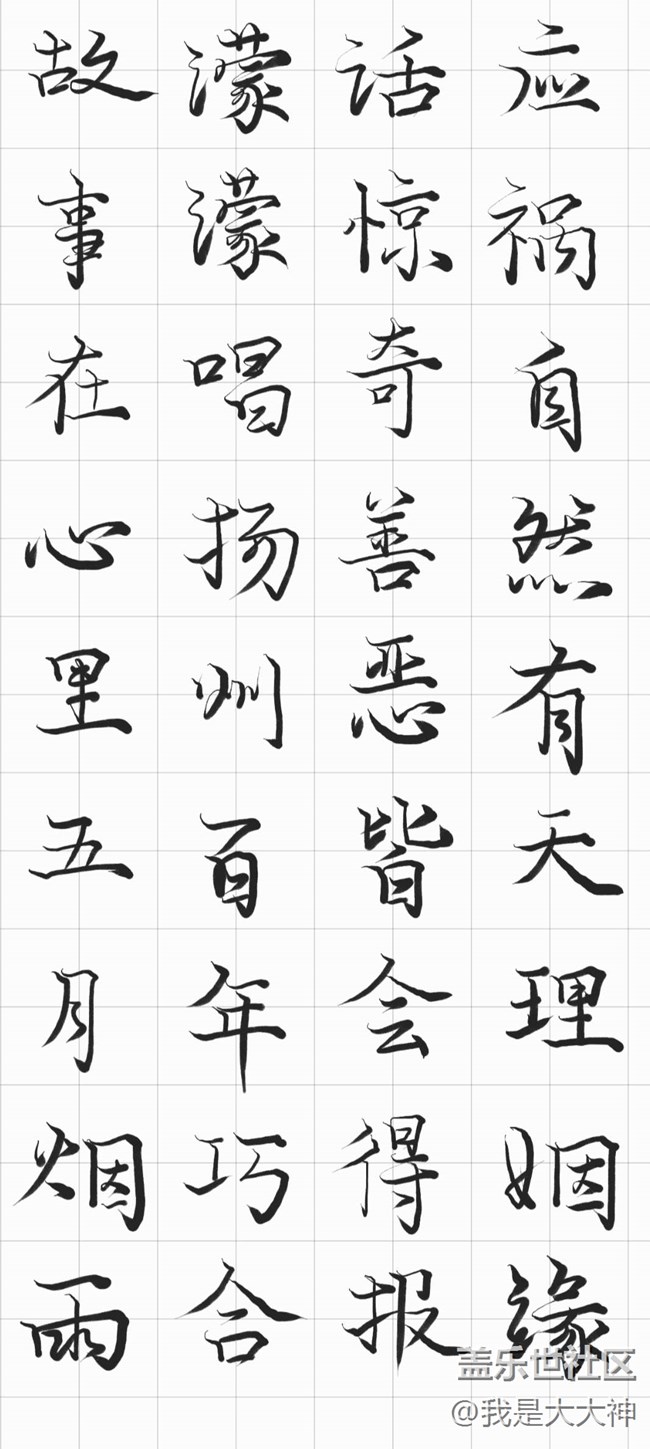 故事在心里五月烟雨
濛濛唱扬州百年巧合
话惊奇善恶皆会得报
应祸自然有天理姻缘
盖乐世社区
@我是大大神